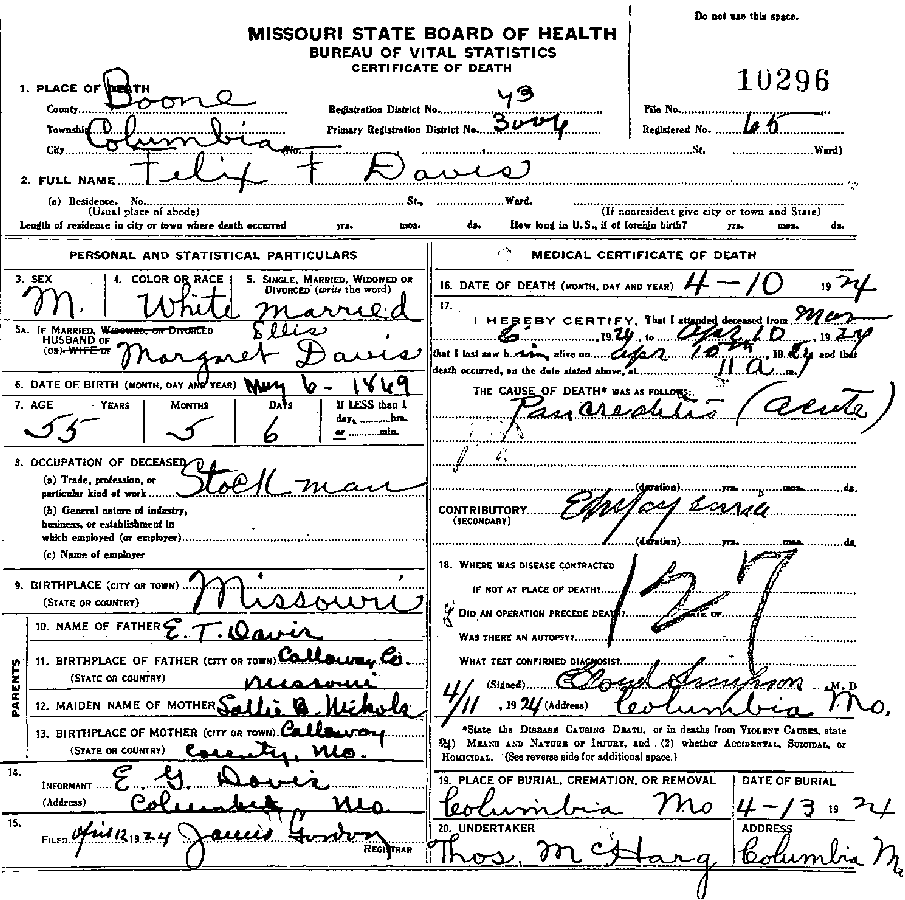 Do not use this space.
MISSOURI STATE BOARD OF HEALTH
BUREAU OF VITAL STATISTICS
CERTIFICATE OF DEATH
10296
1. PLACE OF DEATH
County Boone Registration District No. 73 File No.
Township Columbia Primary Registration District No. 3006 Registered No. 65
City No. St. Ward)
2. FULL NAME Felix F Davis
(a) Residence. No. St., Ward.
(Usual place of abode) (If nonresident give city or town and State)
Length of residence in city or town where death occurred yrs. mos. ds. How long in U.S., if of foreign birth? yrs. mos. ds.
PERSONAL AND STATISTICAL PARTICULARS
3. SEX 4. COLOR OR RACE 5. SINGLE, MARRIED, WIDOWED OR DIVORCED (write the word)
M. White married
5A. IF MARRIED, WIDOWED, OR DIVORCED
HUSBAND OF
(OR) WIFE OF Margaret Ellis Davis
6. DATE OF BIRTH (MONTH, DAY AND YEAR) May 6 - 1869
7. AGE YEARS MONTHS DAYS If LESS than 1 day, hrs. or min.
55 5 6
8. OCCUPATION OF DECEASED
(a) Trade, profession, or particular kind of work Stockman
(b) General nature of industry, business, or establishment in which employed (or employer)
(c) Name of employer
9. BIRTHPLACE (CITY OR TOWN) Missouri
(STATE OR COUNTRY)
PARENTS
10. NAME OF FATHER E. T. Davis
11. BIRTHPLACE OF FATHER (CITY OR TOWN) Callaway Co.
(STATE OR COUNTRY) Missouri
12. MAIDEN NAME OF MOTHER Sallie B. Nichols
13. BIRTHPLACE OF MOTHER (CITY OR TOWN) Calloway
(STATE OR COUNTRY) County, Mo.
14. INFORMANT E. G. Davis
(Address) Columbia, Mo
15. FILED April 12 1924 James Gordon
REGISTRAR
MEDICAL CERTIFICATE OF DEATH
16. DATE OF DEATH (MONTH, DAY AND YEAR) 4-10 1924
17. I HEREBY CERTIFY, That I attended deceased from Mar
6 1924 to Apr 10 1924
that I last saw him alive on Apr 10th 1924 and that
death occurred, on the date stated above, at 11 a m.
THE CAUSE OF DEATH* WAS AS FOLLOWS:
Pancreatitis (acute)
(duration) yrs. mos. ds.
CONTRIBUTORY
(SECONDARY)
(duration) yrs. mos. ds.
18. WHERE WAS DISEASE CONTRACTED
IF NOT AT PLACE OF DEATH?
127
DID AN OPERATION PRECEDE DEATH? DATE OF
WAS THERE AN AUTOPSY?
WHAT TEST CONFIRMED DIAGNOSIS?
(Signed) Lloyd Simpson, M. D
4/11, 1924 (Address) Columbia Mo.
*State the DISEASE CAUSING DEATH, or in deaths from VIOLENT CAUSES, state
(1) MEANS AND NATURE OF INJURY, and (2) whether ACCIDENTAL, SUICIDAL, or
HOMICIDAL. (See reverse side for additional space.)
19. PLACE OF BURIAL, CREMATION, OR REMOVAL DATE OF BURIAL
Columbia Mo 4-13 1924
20. UNDERTAKER ADDRESS
Thos. McHarg Columbia Mo